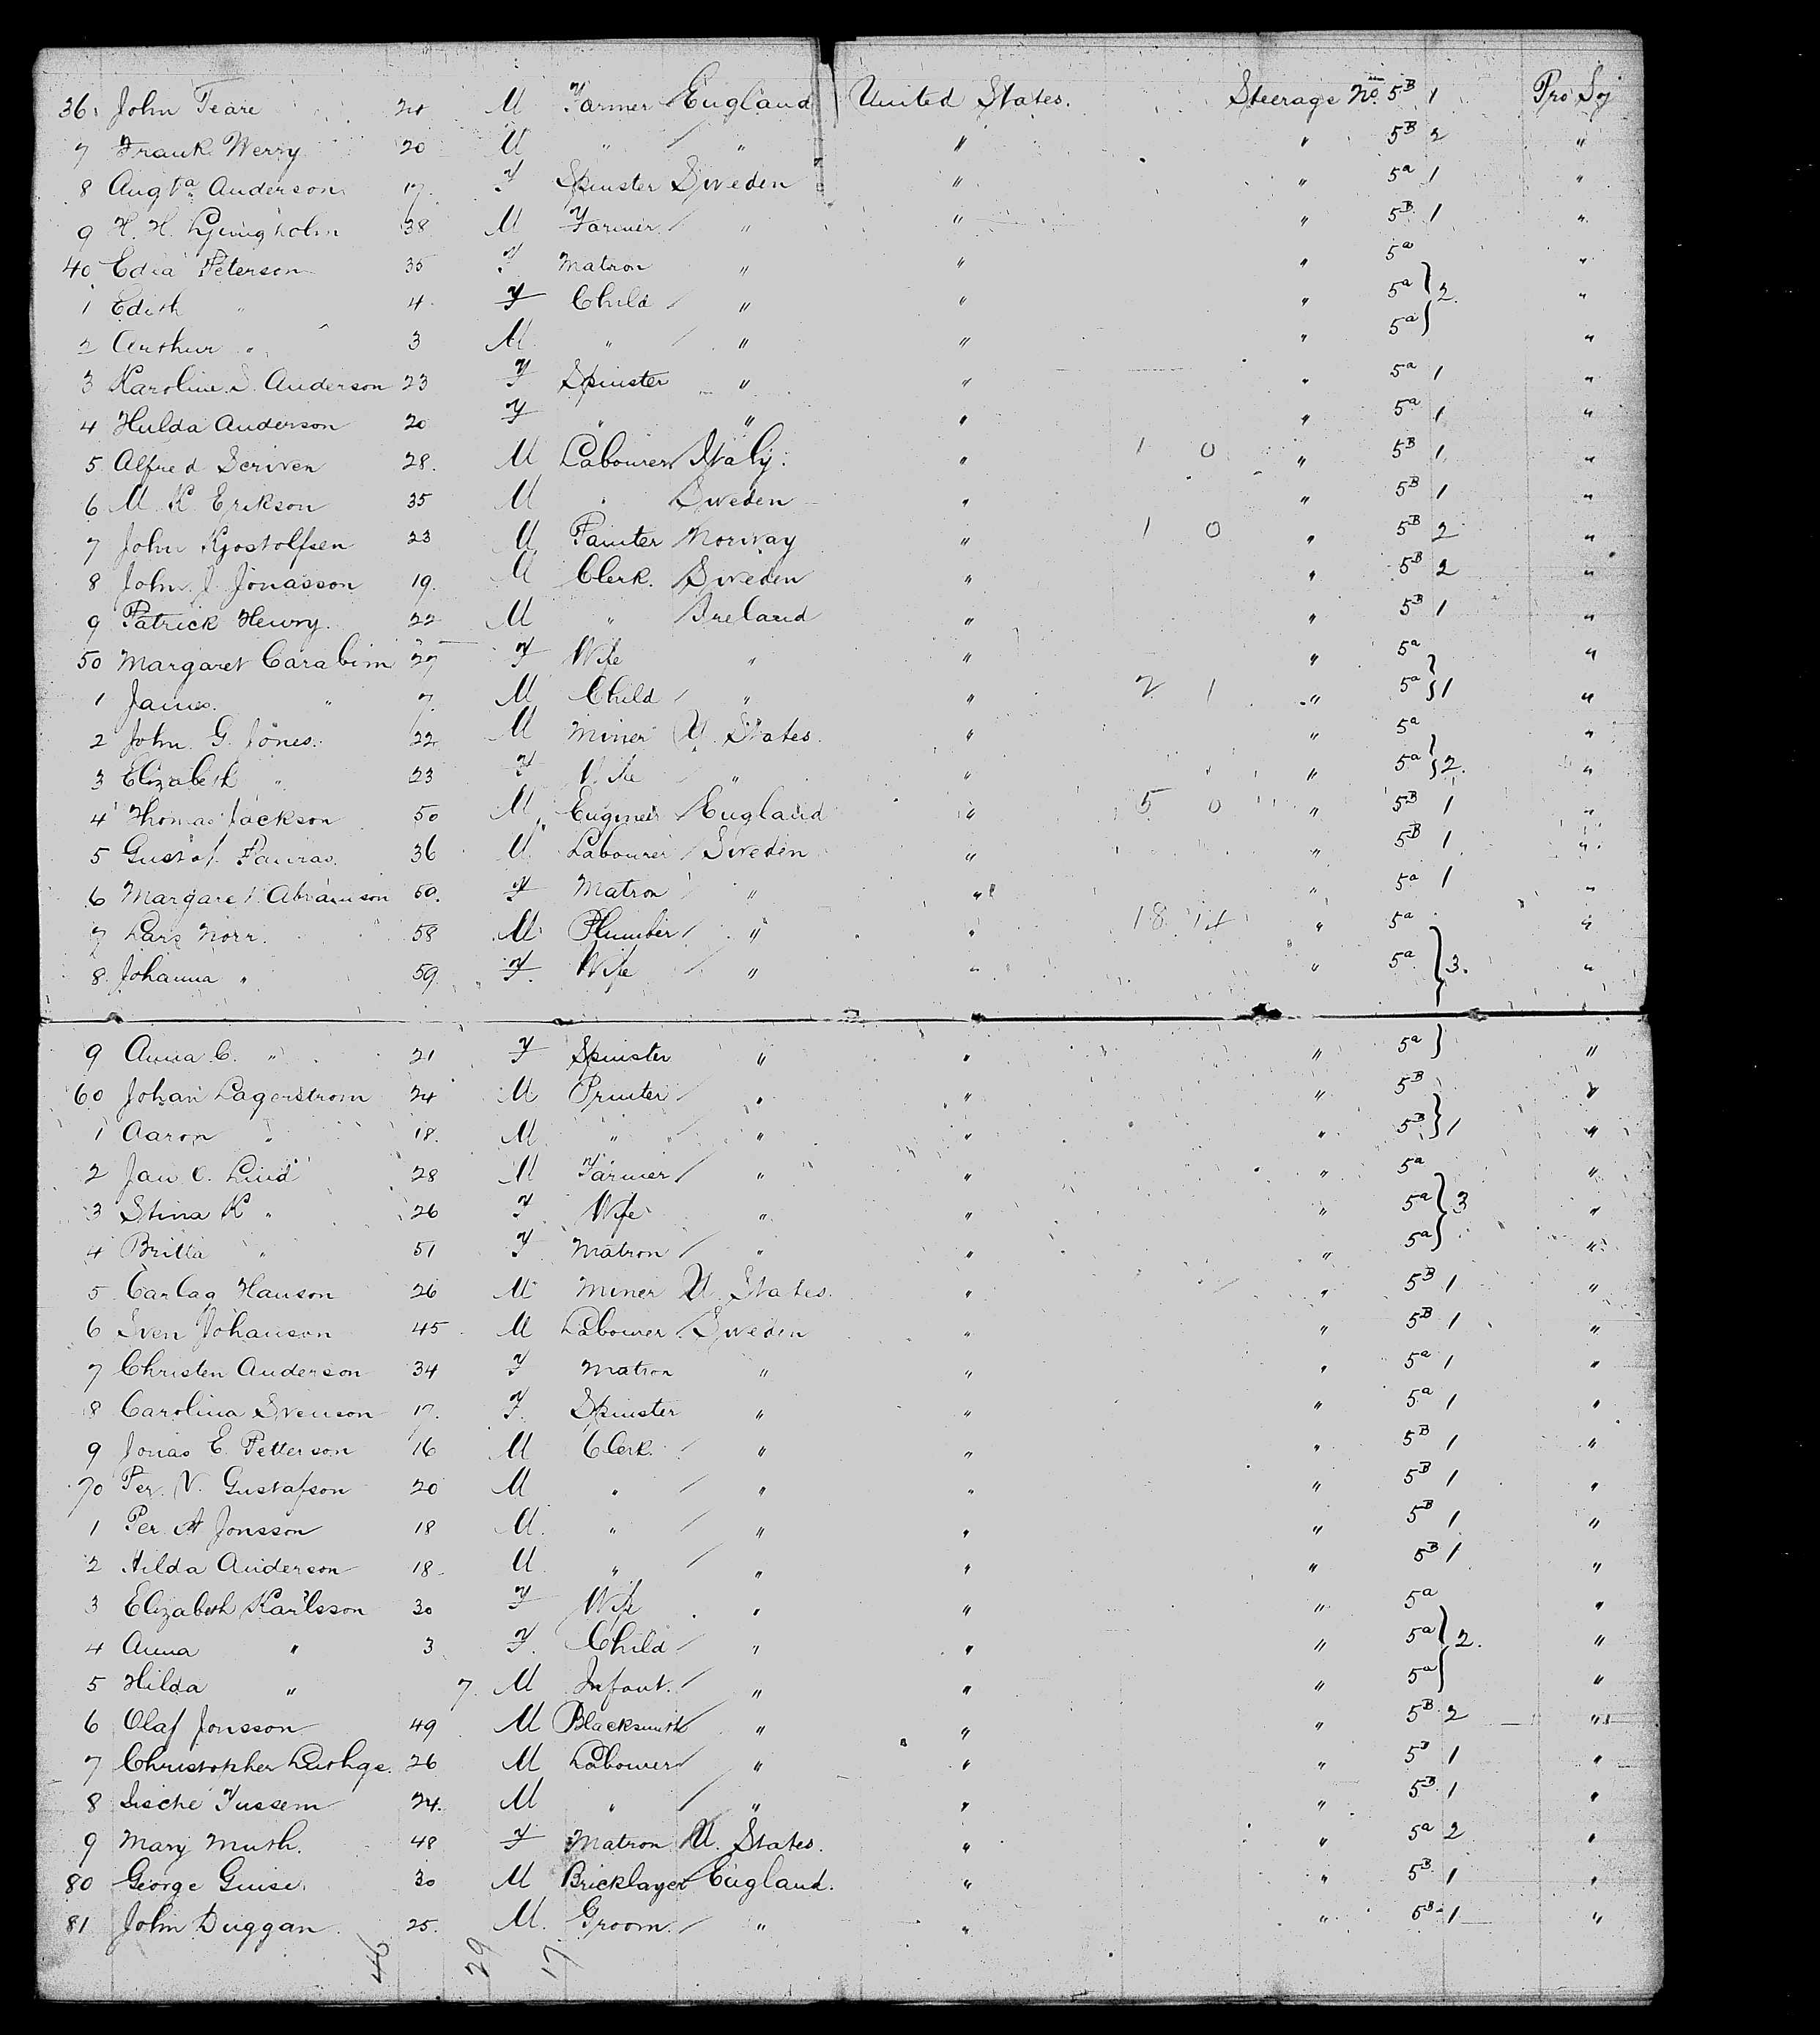 36 John Teare 24 M Farmer England United States. Steerage No. 5B 1 Pro Soj
7 Frank Werry 20 M " " " " 5B 2 "
8 Augta Anderson 17. F Spinster Sweden " " 5a 1 "
9 H. H. Ljungholm 38 M Farmer " " " 5B 1 "
40 Edla Peterson 35 F Matron " " " 5a "
1 Edith " 4 F Child " " " 5a } 2. "
2 Arthur " 3 M " " " " 5a "
3 Karoline S. Anderson 23 F Spinster " " " 5a 1 "
4 Hulda Anderson 20 F " " " " 5a 1 "
5 Alfred Scriven 28. M Labourer Italy. " 1 0 " 5B 1 "
6 M. K. Erikson 35 M " Sweden " " 5B 1 "
7 John Kjostolfsen 23 M Painter Norway " 1 0 " 5B 2 "
8 John J. Jonasson 19. M Clerk. Sweden " " 5B 2 "
9 Patrick Henry. 22 M " Ireland " " 5B 1 "
50 Margaret Carabim 27 F Wife " " " 5a "
1 James. " 7. M Child " " 2 1 " 5a } 1 "
2 John G. Jones. 22 M Miner U. States. " " 5a "
3 Elizabeth " 23 F Wife " " " 5a } 2. "
4 Thomas Jackson 50 M Engineer England " 5 0 " 5B 1 "
5 Gustaf 36 M Labourer Sweden " " 5B 1 "
6 Margaret Abramson 50. F Matron " " " 5a 1 "
7 Lars Norr. 58 M Plumber " " 18 14 " 5a "
8. Johanna " 59 F. Wife " " " 5a } 3. "
9 Anna C. " 21 F Spinster " " " 5a } "
60 Johan Lagerstrom 24 M Printer " " " 5B "
1 Aaron " 18. M " " " " 5B } 1 "
2 Jan O. Lind 28 M Farmer " " " 5a "
3 Stina K " 26 F Wife " " " 5a } 3 "
4 Britta " 51 F Matron " " " 5a "
5 Hanson 26 M Miner U. States. " " 5B 1 "
6 Sven Johanson 45 M Labourer Sweden " " 5B 1 "
7 Christen Anderson 34 F Matron " " " 5a 1 "
8 Carolina Svenson 17. F. Spinster " " " 5a 1 "
9 Jonas E. Petterson 16 M Clerk. " " " 5B 1 "
70 Per. N. Gustafson 20 M " " " " 5B 1 "
1 Per. A Jonsson 18 M. " " " " 5B 1 "
2 Hilda Anderson 18. M " " " " 5B 1 "
3 Elizabeth Karlsson 30 F Wife " " " 5a "
4 Anna " 3 F. Child " " " 5a } 2. "
5 Hilda " 7. M Infant. " " " 5a "
6 Olaf Jonsson 49 M Blacksmith " " " 5B 2 "
7 Christopher 26 M Labourer " " " 5B 1 "
8 24. M " " " " 5B 1 "
9 Mary Muth. 48 F Matron U. States. " " 5a 2 "
80 George Guise. 30 M Bricklayer England. " " 5B 1 "
81 John Duggan 25. M. Groom. " " " 5B 1 "
46 29 17